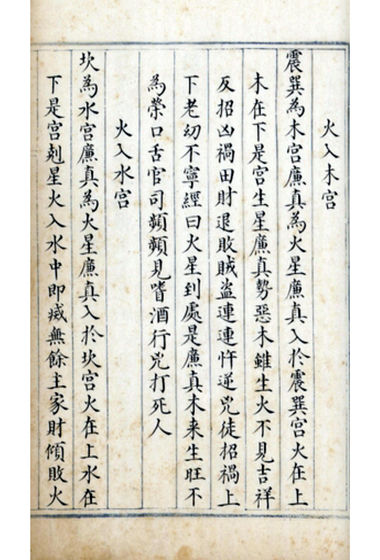 火入木宫
震巽為木宫廉真為火星廉真入於震巽宫火在上
木在下是宫生星廉真勢惡木雖生火不見吉祥
反招凶禍田財退敗賊盗連連忤逆兇徒招禍上
下老幼不寧經曰火星到處是廉真木来生旺不
為榮口舌官司頻頻見嗜酒行兇打死人
火入水宫
坎為水宫廉真為火星廉真入於坎宫火在上水在
下是宫剋星火入水中即烕無餘主家財傾敗火